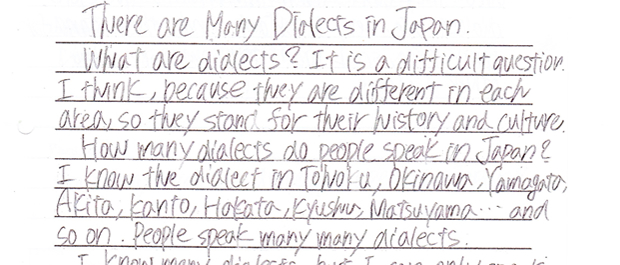 There are Many Dialects in Japan.
What are dialects? It is a difficult question.
I think, because they are different in each
area, so they stand for their history and culture.
How many dialects do people speak in Japan?
I know the dialect in Tohoku, Okinawa, Yamagata,
Akita, Kanto, Hakata, Kyushu, Matsuyama … and
so on. People speak many many dialects.
I know many dialects, but I can only